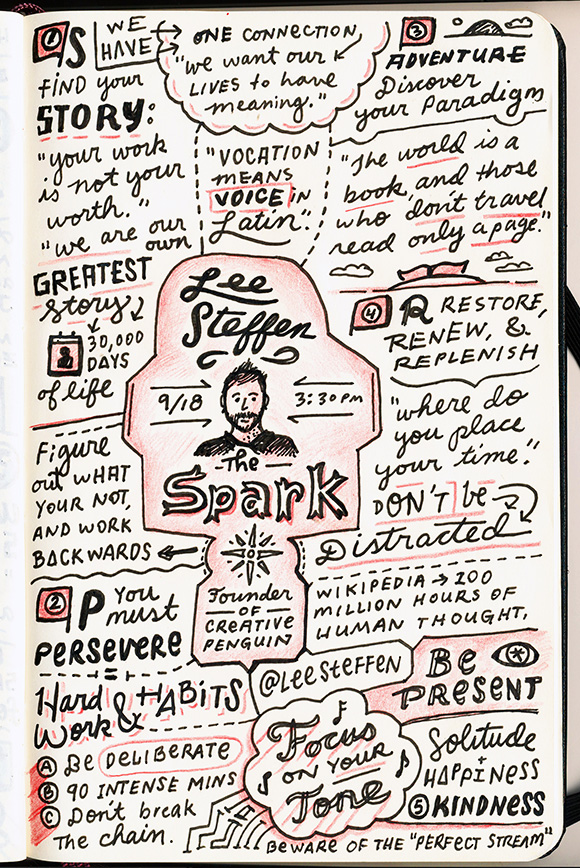 1 S
WE HAVE
ONE CONNECTION,
"we want our
LIVES to have
meaning."
FIND your
STORY:
"your work
is not your
worth."
"we are our
own
GREATEST
story
30,000
DAYS
of life
Figure
out WHAT
YOUR NOT,
AND WORK
BACKWARDS
"VOCATION
MEANS
VOICE in
Latin".
3 A
ADVENTURE
Discover
your Paradigm
"The world is a
book, and those
who don't travel
read only a page."
Lee
Steffen
9/18
3:30PM
The
Spark
Founder
OF
CREATIVE
PENGUIN
4 R RESTORE,
RENEW, &
REPLENISH
"where do
you place
your time".
DON'T be
Distracted
WIKIPEDIA → 100
MILLION HOURS OF
HUMAN THOUGHT,
2 P YOU
must
PERSEVERE
Hard
Work & HABITS
A Be DELIBERATE
B 90 INTENSE MINS
C Don't break
The chain.
@LEESTEFFEN
BE
PRESENT
Focus
ON YOUR
Tone
Solitude
HAPPINESS
5 KINDNESS
BEWARE OF THE "PERFECT STREAM"